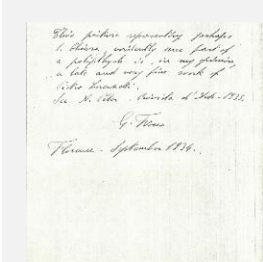 This picture representing perhaps
S. Chiara, evidently once part of
a polyptych is, in my opinion,
a late and very fine work of
Pietro Lorenzetti.
See K. Peter - Rivista d'Arte - 1933.
Florence - September 1934.